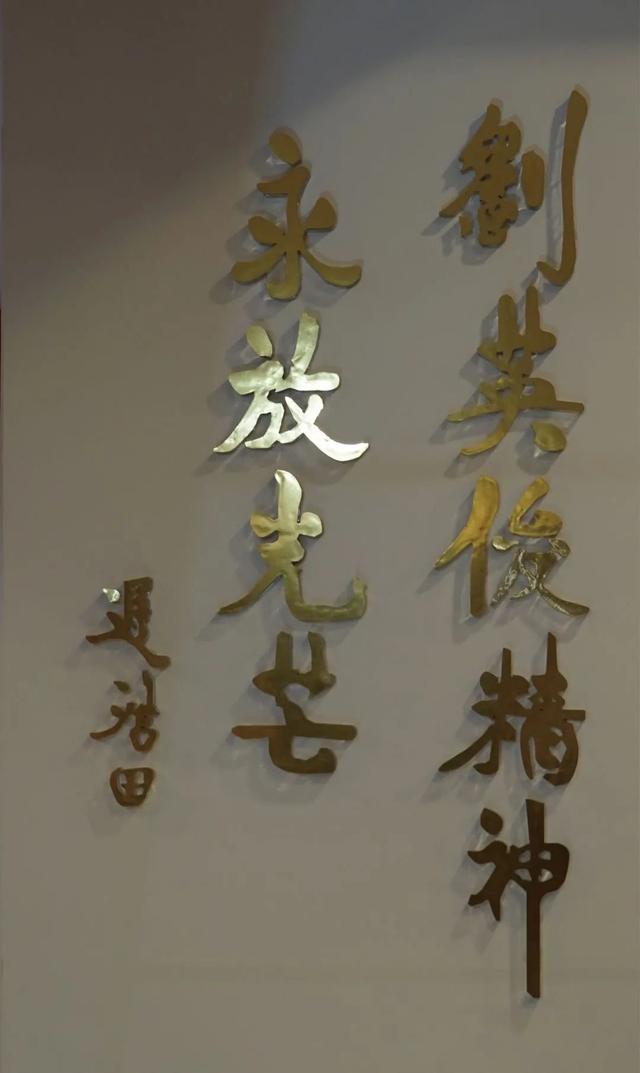 劉英俊精神
永放光芒
遲浩田